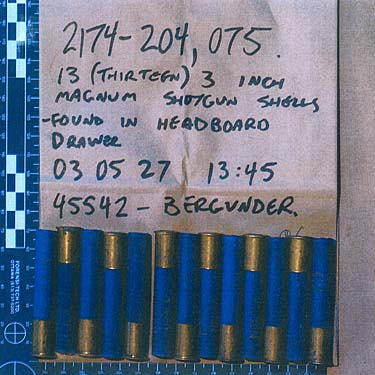 2174-204, 075.
13 (THIRTEEN) 3 INCH
MAGNUM SHOTGUN SHELLS
-FOUND IN HEADBOARD
DRAWER
03 05 27 13:45
45542 - BERGUNDER.
FORENSI-TECH LTD.